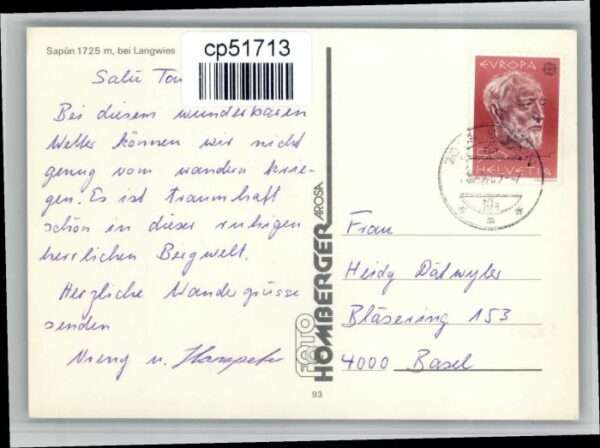 Sapün 1725 m, bei Langwies
cp51713
Salü
Bei diesem wunderbaren
Wetter können wir nicht
genug vom wandern krie-
gen. Es ist traumhaft
schön in dieser ruhigen
herrlichen Bergwelt.
Herzliche Wandergrüsse
senden
Vreny u. Hanspeter
FOTO
HOMBERGER AROSA
93
EUROPA
HELVETIA
Frau
Heidy Dätwyler
Bläsiring 153
4000 Basel